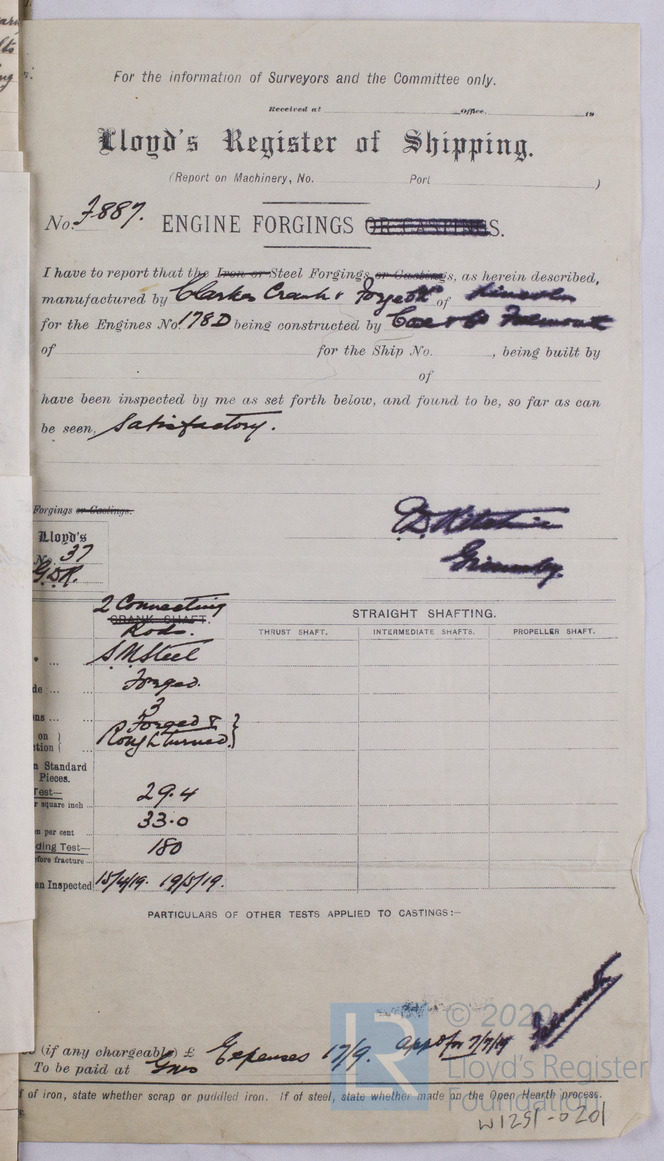 For the information of Surveyors and the Committee only.
Received at Office, 19
Lloyd's Register of Shipping.
(Report on Machinery, No. Port )
No. F887. ENGINE FORGINGS OR CASTINGS.
I have to report that the Iron or Steel Forgings or Castings, as herein described,
manufactured by Clarkes Crank & Forge Co of Lincoln
for the Engines No. 178D being constructed by Cox & Co Falmouth
of for the Ship No. , being built by
of
have been inspected by me as set forth below, and found to be, so far as can
be seen, Satisfactory.
Forgings or Castings.
Lloyd's
No. 37
G.D.R.
Grimsby.
2 Connecting
CRANK SHAFT.
Rods.
STRAIGHT SHAFTING.
THRUST SHAFT. INTERMEDIATE SHAFTS. PROPELLER SHAFT.
S.M. Steel
de ... Forged.
ns ... 3
on } Forged &
tion { Rough turned }
n Standard
Pieces.
Test— 29.4
r square inch ...
33.0
n per cent ...
ding Test— 180
efore fracture ...
en Inspected 15/4/19. 19/5/19.
PARTICULARS OF OTHER TESTS APPLIED TO CASTINGS:—
(if any chargeable) £ Expenses 17/9. appd for 7/7/19
To be paid at Gms
f of iron, state whether scrap or puddled iron. If of steel, state whether made on the Open Hearth process.
© 2020
Lloyd's Register
Foundation
W1251-0201